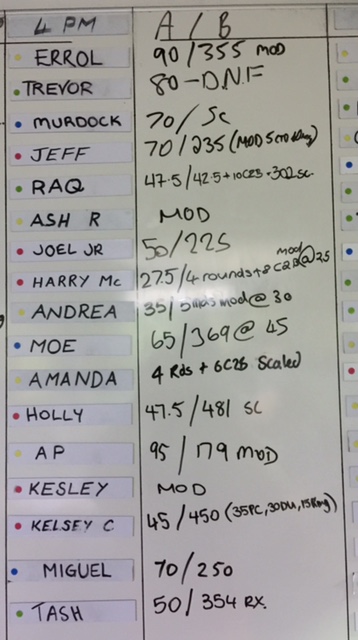 4 PM A / B
ERROL 90/355 MOD
TREVOR 80 - D.N.F
MURDOCK 70/ Sc
JEFF 70/235 (MOD
RAQ 47.5/42.5+10C25
ASH R MOD
JOEL JR 50/225
HARRY Mc 27.5/4 rounds+ mod @25
ANDREA 35/ mod@ 30
MOE 65/369@ 45
AMANDA 4 Rds + 6C2B Scaled
HOLLY 47.5/481 SC
AP 95/179 MOD
KESLEY MOD
KELSEY C 45/450 (35PC, 30DU,
MIGUEL 70/250
TASH 50/354 RX.